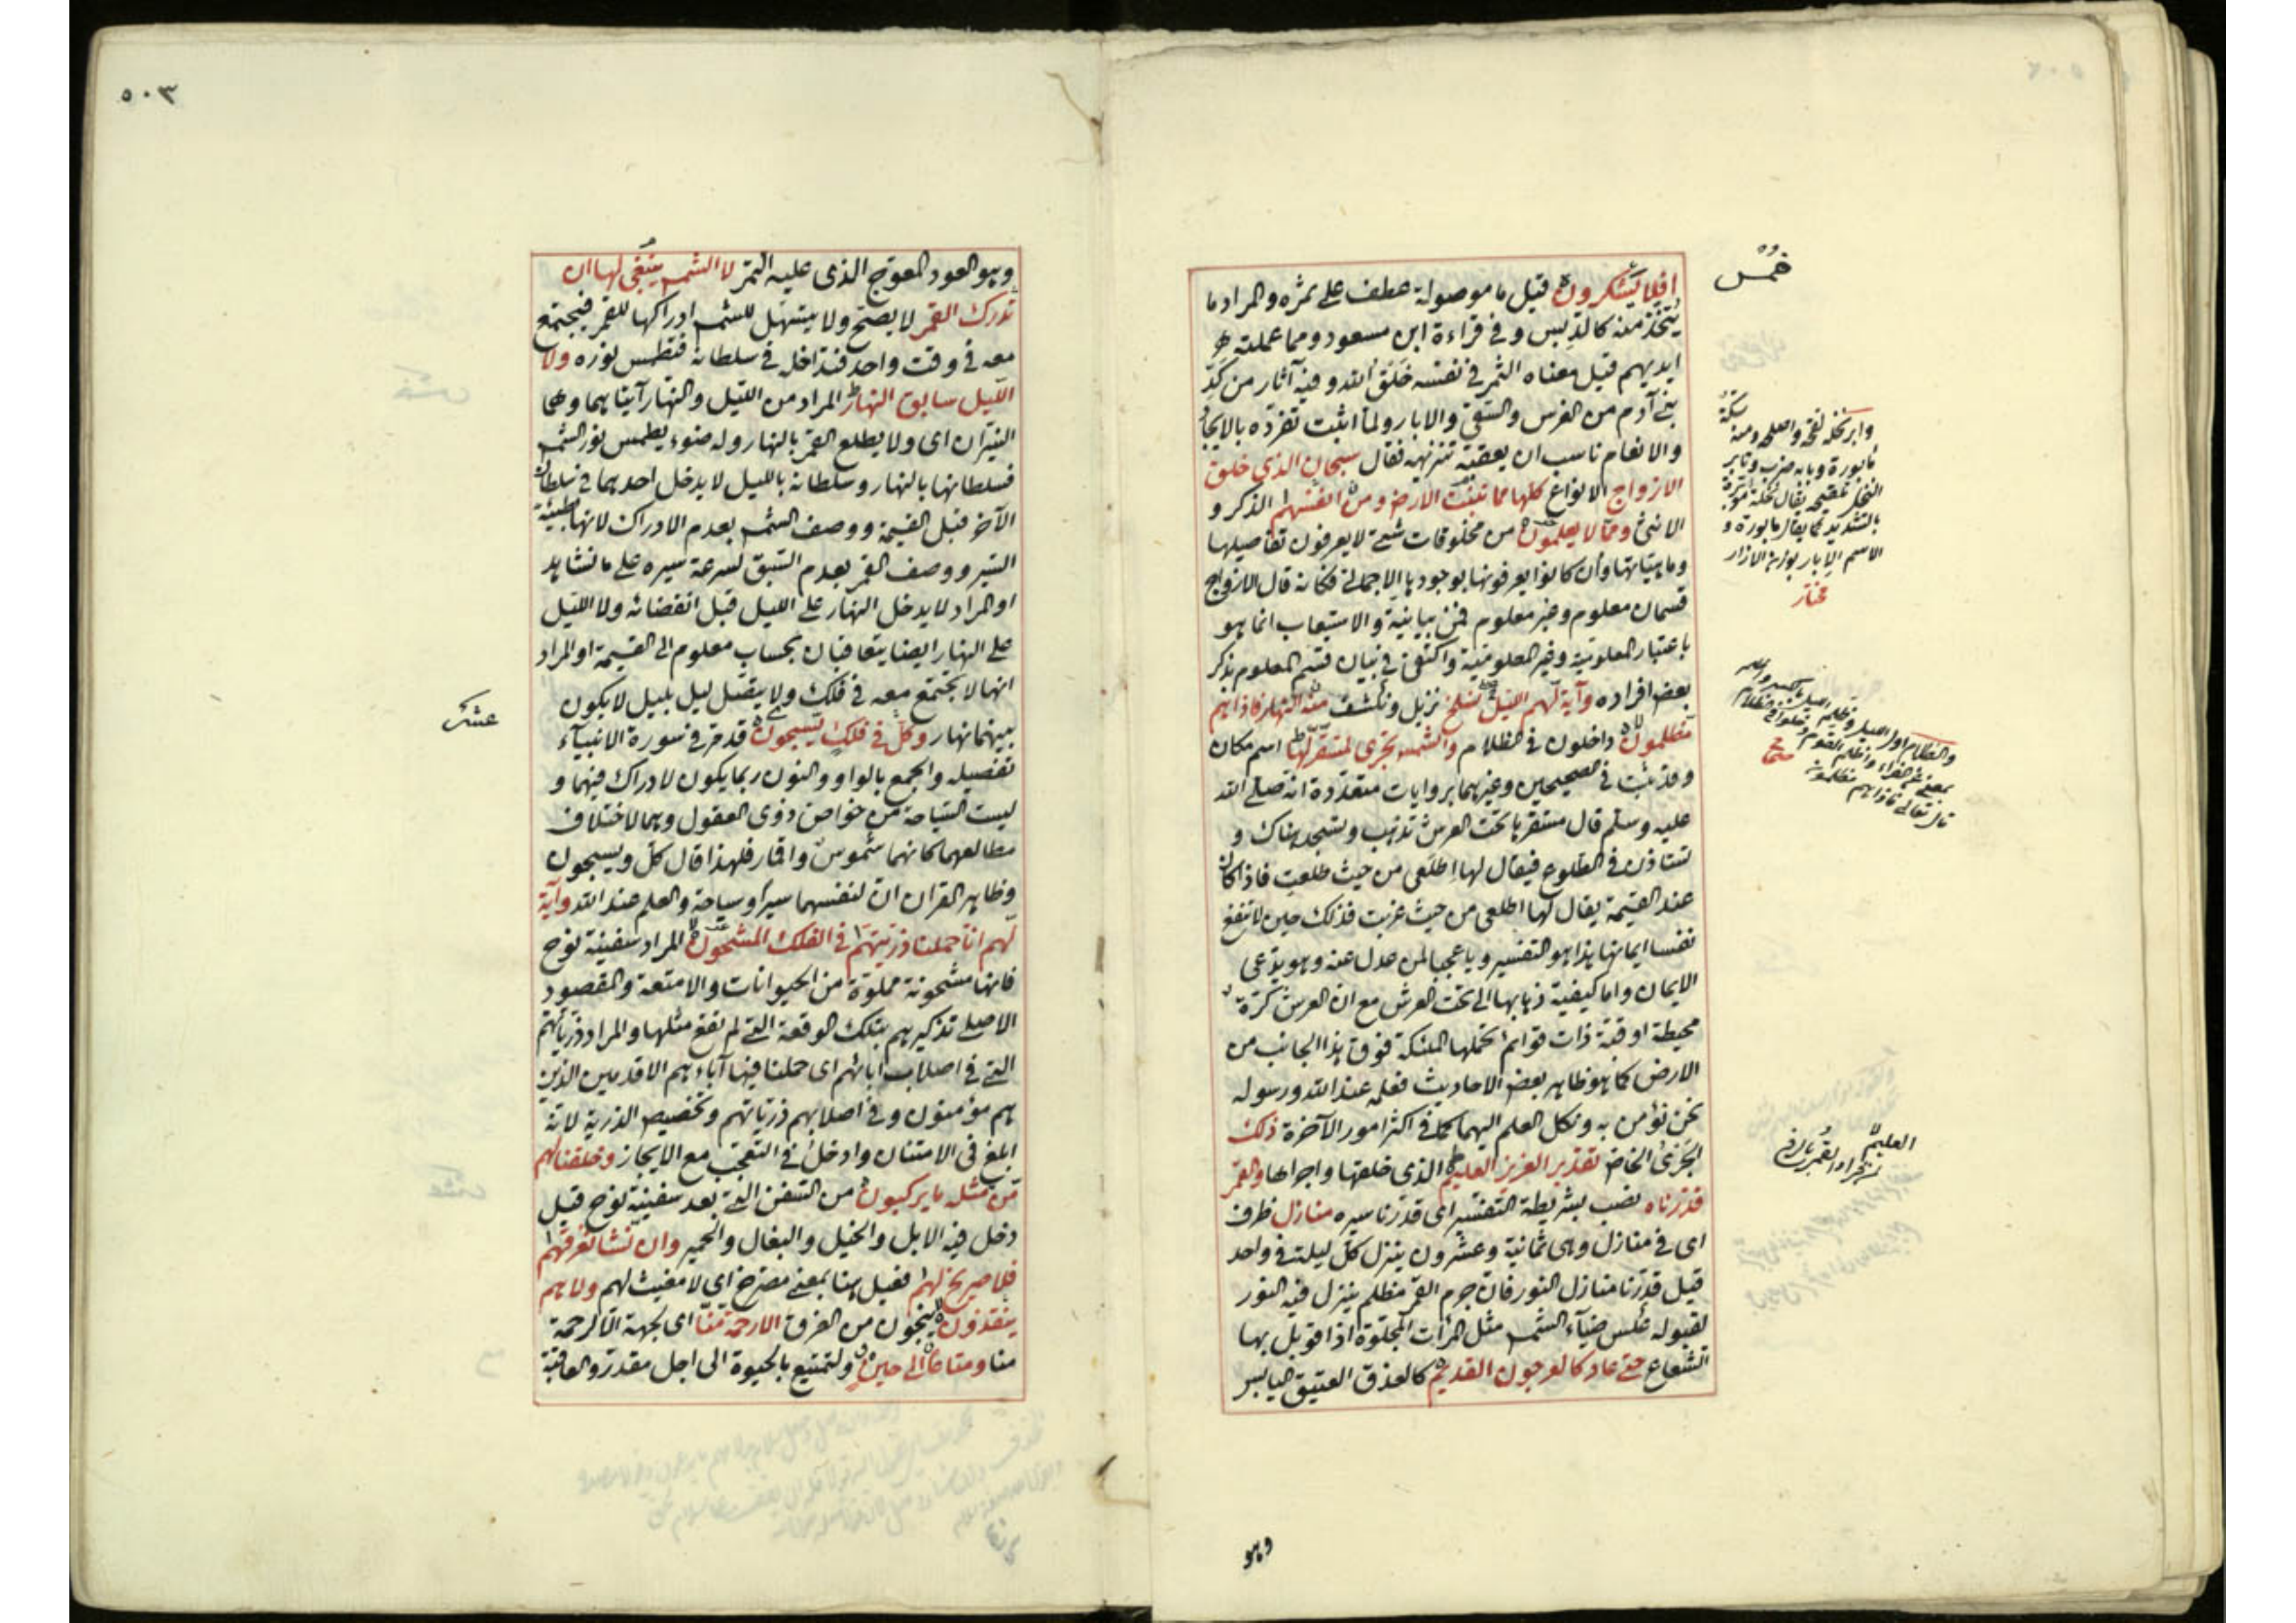 افلا يشكرون قيل ما موصولة عطف على ثمره والمراد ما
يتخذ منه كالدبس وفي قراءة ابن مسعود ومما عملته
ايديهم قيل معناه الثمر في نفسه خلق الله وفيه آثار من كد
بني آدم من الغرس والسقي والابار ولما اثبت تفرده بالايجاد
والانعام ناسب ان يعقبه تنزيهه فقال سبحان الذي خلق
الازواج الانواع كلها مما تنبت الارض ومن انفسهم الذكر و
الانثى ومما لا يعلمون من مخلوقات شتى لا يعرفون تفاصيلها
وماهياتها وان كانوا يعرفونها بوجودها الاجمالي فكانه قال الازواج
قسمان معلوم وغير معلوم فمن بيانية والاستيعاب انما هو
باعتبار المعلومية وغير المعلومية واكتفى في بيان قسم المعلوم بذكر
بعض افراده وآية لهم الليل نسلخ نزيل ونكشف منه النهار فاذا هم
مظلمون داخلون في الظلام والشمس تجري لمستقر لها اسم مكان
وقد ثبت في الصحيحين وغيرهما بروايات متعددة انه صلى الله
عليه وسلم قال مستقرها تحت العرش تذهب وتسجد هناك و
تستاذن في الطلوع فيقال لها اطلعي من حيث طلعت فاذا كان
عند القيمة يقال لها اطلعي من حيث غربت فذلك حين لا ينفع
نفسا ايمانها هذا هو التفسير ويا عجبا لمن عدل عنه وهو يدعي
الايمان واما كيفية ذهابها الى تحت العرش مع ان العرش كرة
محيطة او قبة ذات قوائم تحملها الملئكة فوق هذا الجانب من
الارض كما هو ظاهر بعض الاحاديث فعلمه عند الله ورسوله
نحن نؤمن به ونكل العلم اليهما كما في اكثر امور الآخرة ذلك
الجري الخاص تقدير العزيز العليم الذي خلقها واجراها والقمر
قدرناه نصب بشريطة التفسير اي قدرنا سيره منازل ظرف
اي في منازل وهي ثمانية وعشرون ينزل كل ليلة في واحد
قيل قدرنا منازل النور فان جرم القمر مظلم ينزل فيه النور
لقبوله عكس ضياء الشمس مثل المرآت المجلوة اذا قوبل بها
الشعاع حتى عاد كالعرجون القديم كالعذق العتيق اليابس
وهو
خمس
وابر نخله لقحه واصلحه ومنه سكة
مابورة وبابه ضرب وتابير
النخل تلقيحه يقال نخلة مؤبرة
بالتشديد كما يقال مابورة و
الاسم الابار بوزن الازار
مختار
والظلام اول الليل
واظلم القوم دخلوا في الظلام
قال تعالى فاذا هم مظلمون
العليم
٥٠٣
وهو العود المعوج الذي عليه الثمر لا الشمس ينبغي لها ان
تدرك القمر لا يصح ولا يتسهل للشمس ادراكها للقمر فيجتمع
معه في وقت واحد فتداخل في سلطانه فتطمس نوره ولا
الليل سابق النهار المراد من الليل والنهار آيتاهما وهما
النيران اي ولا يطلع القمر بالنهار وله ضوء يطمس نور الشمس
فسلطانها بالنهار وسلطانه بالليل لا يدخل احدهما في سلطان
الآخر قبل القيمة ووصف الشمس بعدم الادراك لانها بطيئة
السير ووصف القمر بعدم السبق لسرعة سيره على ما نشاهد
او المراد لا يدخل النهار على الليل قبل انقضائه ولا الليل
على النهار ايضا يتعاقبان بحساب معلوم الى القيمة او المراد
انها لا يجتمع معه في فلك ولا يتصل ليل بليل لا يكون
بينهما نهار وكل في فلك يسبحون قد مر في سورة الانبياء
تفصيله والجمع بالواو والنون ربما يكون لادراك فيهما و
ليست السباحة من خواص ذوى العقول وهما لاختلاف
مطالعهما كانهما شموس واقمار فلهذا قال كل ويسبحون
وظاهر القران ان لنفسهما سيرا وسباحة والعلم عند الله وآية
لهم انا حملنا ذريتهم في الفلك المشحون المراد سفينة نوح
فانها مشحونة مملوة من الحيوانات والامتعة والمقصود
الاصلي تذكيرهم بتلك الوقعة التي لم تقع مثلها والمراد ذرياتهم
التي في اصلاب آبائهم اي حملنا فيها آباءهم الاقدمين الذين
هم مؤمنون وفي اصلابهم ذرياتهم وتخصيص الذرية لانه
ابلغ في الامتنان وادخل في التعجب مع الايجاز وخلقنا لهم
من مثله ما يركبون من السفن التي بعد سفينة نوح قيل
دخل فيه الابل والخيل والبغال والحمير وان نشا نغرقهم
فلا صريخ لهم فعيل هنا بمعنى مصرخ اي لا مغيث لهم ولا هم
ينقذون ينجون من الغرق الا رحمة منا اي لجهة الا لرحمة
منا ومتاعا الى حين ولتمتيع بالحيوة الى اجل مقدر والعاقبة
عشر